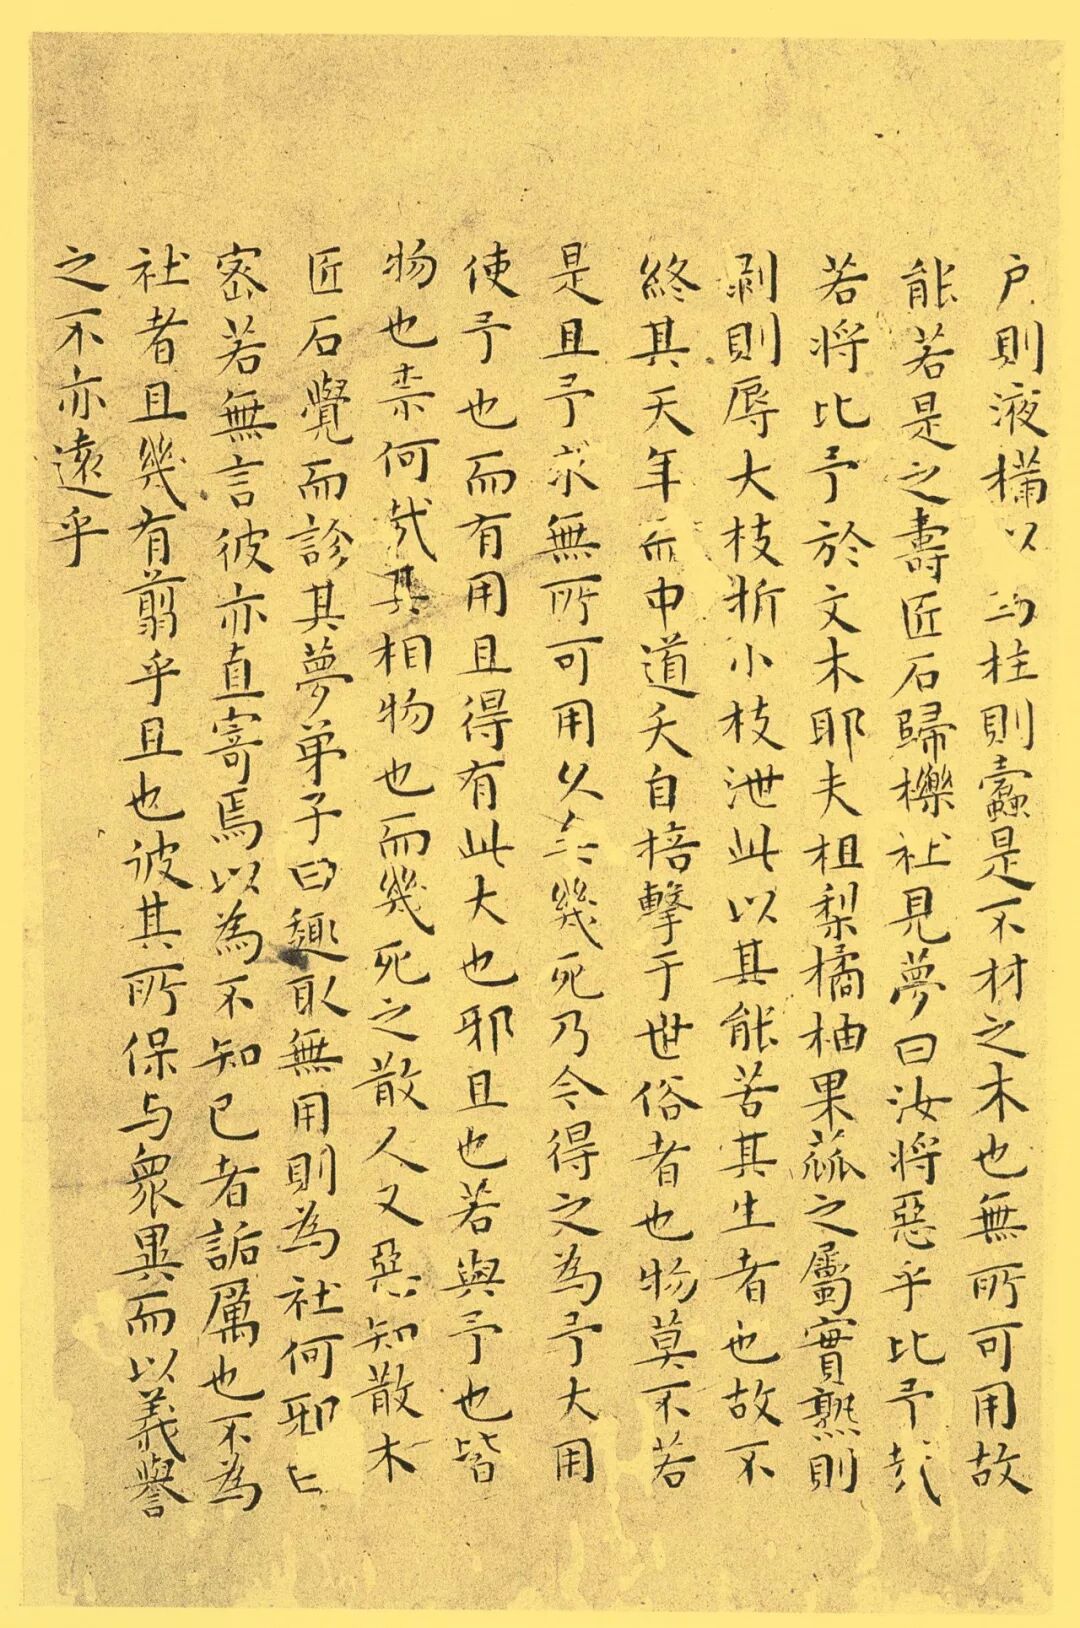 户則液樠以為柱則蠹是不材之木也無所可用故
能若是之壽匠石歸櫟社見夢曰汝將惡乎比予哉
若將比予於文木耶夫柤梨橘柚果蓏之屬實熟則
剥則辱大枝折小枝泄此以其能苦其生者也故不
終其天年而中道夭自掊擊于世俗者也物莫不若
是且予求無所可用久矣幾死乃今得之為予大用
使予也而有用且得有此大也邪且也若與予也皆
物也柰何哉其相物也而幾死之散人又惡知散木
匠石覺而診其夢弟子曰趣取無用則為社何邪曰
密若無言彼亦直寄焉以為不知已者詬厲也不為
社者且幾有翦乎且也彼其所保与衆異而以義譽
之不亦遠乎